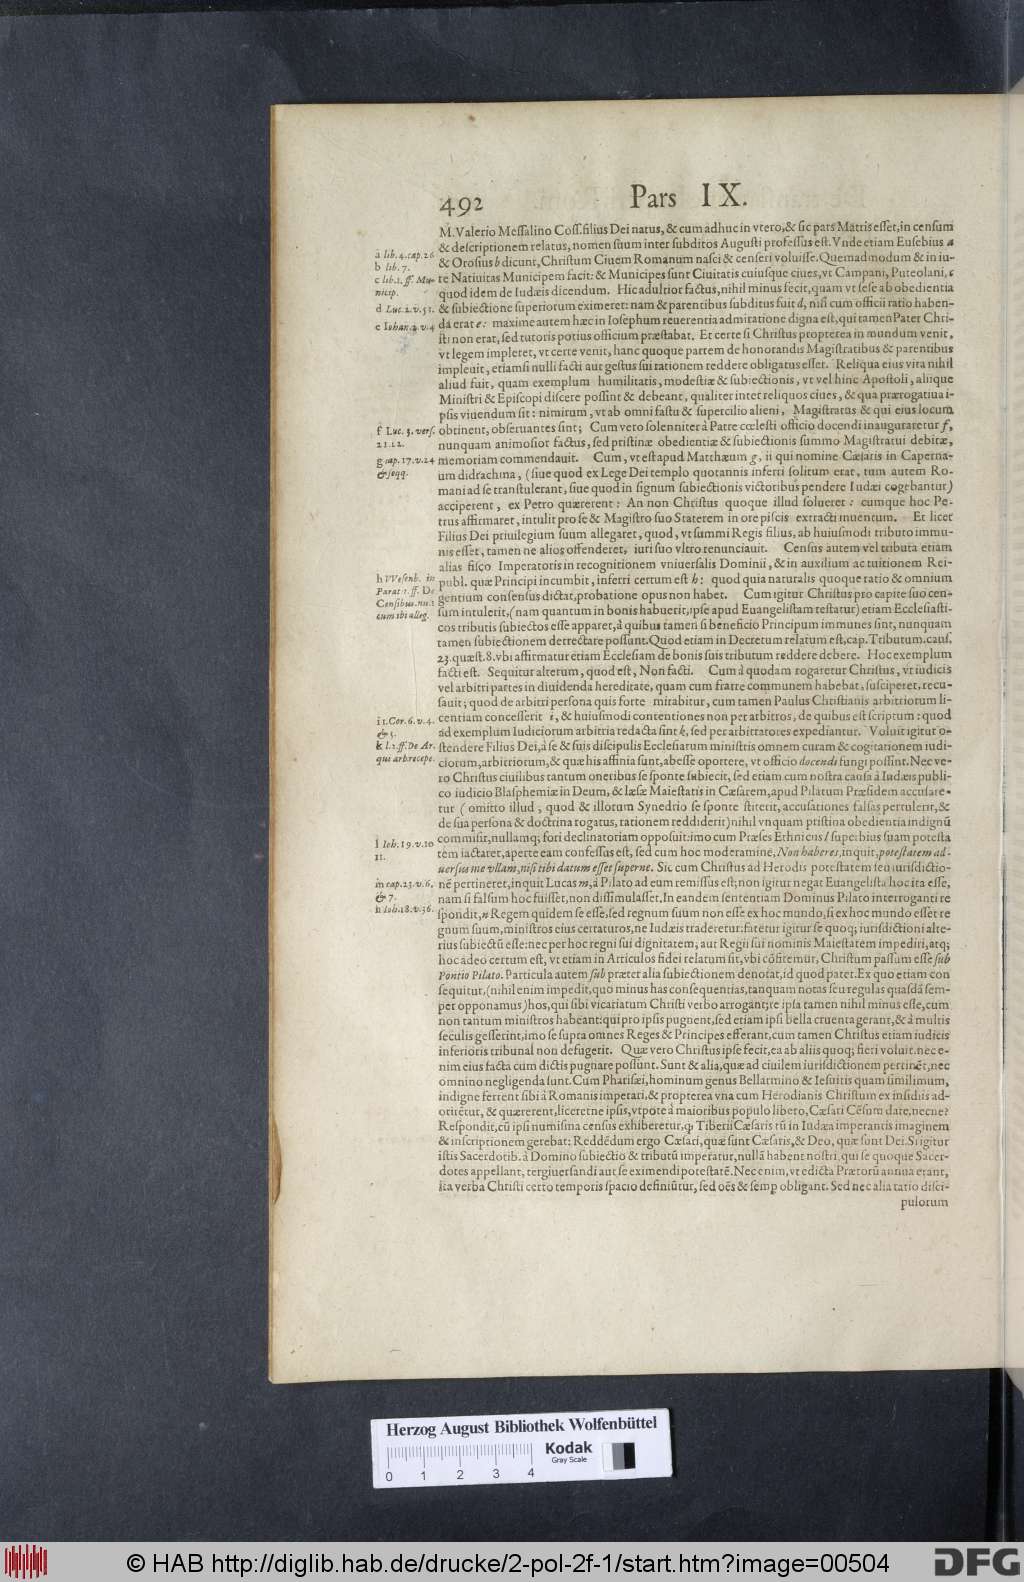 492 Pars IX.
M. Valerio Messalino Coss. filius Dei natus, & cum adhuc in vtero, & sic pars Matris esset, in censum
& descriptionem relatus, nomen suum inter subditos Augusti professus est. Vnde etiam Eusebius a
& Orosius b dicunt, Christum Ciuem Romanum nasci & censeri voluisse. Quemadmodum & in iu-
re Natiuitas Municipem facit: & Municipes sunt Ciuitatis cuiusque ciues, vt Campani, Puteolani, c
quod idem de Iudæis dicendum. Hic adultior factus, nihil minus fecit, quam vt sese ab obedientia
& subiectione superiorum eximeret: nam & parentibus subditus fuit d, nisi cum officii ratio haben-
da erat e: maxime autem hæc in Iosephum reuerentia admiratione digna est, qui tamen Pater Chri-
sti non erat, sed tutoris potius officium præstabat. Et certe si Christus propterea in mundum venit,
vt legem impleret, vt certe venit, hanc quoque partem de honorandis Magistratibus & parentibus
impleuit, etiamsi nulli facti aut gestus sui rationem reddere obligatus esset. Reliqua eius vita nihil
aliud fuit, quam exemplum humilitatis, modestiæ & subiectionis, vt vel hinc Apostoli, aliique
Ministri & Episcopi discere possint & debeant, qualiter inter reliquos ciues, & qua prærogatiua i-
psis viuendum sit: nimirum, vt ab omni fastu & supercilio alieni, Magistratus & qui eius locum
obtinent, obseruantes sint; Cum vero solenniter à Patre cœlesti officio docendi inauguraretur f,
nunquam animosior factus, sed pristinæ obedientiæ & subiectionis summo Magistratui debitæ,
memoriam commendauit. Cum, vt est apud Matthæum g, ii qui nomine Cæsaris in Caperna-
um didrachma, (siue quod ex Lege Dei templo quotannis inferri solitum erat, tum autem Ro-
mani ad se transtulerant, siue quod in signum subiectionis victoribus pendere Iudæi cogebantur)
acciperent, ex Petro quærerent: An non Christus quoque illud solueret: cumque hoc Pe-
trus affirmaret, intulit pro se & Magistro suo Staterem in ore piscis extracti inuentum. Et licet
Filius Dei priuilegium suum allegaret, quod, vt summi Regis filius, ab huiusmodi tributo immu-
nis esset, tamen ne alios offenderet, iuri suo vltro renunciauit. Census autem vel tributa etiam
alias fisco Imperatoris in recognitionem vniuersalis Dominii, & in auxilium ac tuitionem Rei-
publ. quæ Principi incumbit, inferri certum est h: quod quia naturalis quoque ratio & omnium
gentium consensus dictat, probatione opus non habet. Cum igitur Christus pro capite suo cen-
sum intulerit, (nam quantum in bonis habuerit, ipse apud Euangelistam testatur) etiam Ecclesiasti-
cos tributis subiectos esse apparet, à quibus tamen si beneficio Principum immunes sint, nunquam
tamen subiectionem detrectare possunt. Quod etiam in Decretum relatum est, cap. Tributum. caus.
23. quæst. 8. vbi affirmatur etiam Ecclesiam de bonis suis tributum reddere debere. Hoc exemplum
facti est. Sequitur alterum, quod est, Non facti. Cum à quodam rogaretur Christus, vt iudicis
vel arbitri partes in diuidenda hereditate, quam cum fratre communem habebat, susciperet, recu-
sauit; quod de arbitri persona quis forte mirabitur, cum tamen Paulus Christianis arbitriorum li-
centiam concesserit i, & huiusmodi contentiones non per arbitros, de quibus est scriptum: quod
ad exemplum Iudiciorum arbitria redacta sint k, sed per arbitratores expediantur. Voluit igitur o-
stendere Filius Dei, à se & suis discipulis Ecclesiarum ministris omnem curam & cogitationem iudi-
ciorum, arbitriorum, & quæ his affinia sunt, abesse oportere, vt officio docendi fungi possint. Nec ve-
ro Christus ciuilibus tantum oneribus se sponte subiecit, sed etiam cum nostra causa à Iudæis publi-
co iudicio Blasphemiæ in Deum, & læsæ Maiestatis in Cæsarem, apud Pilatum Præsidem accusare-
tur (omitto illud, quod & illorum Synedrio se sponte stiterit, accusationes falsas pertulerit, &
de sua persona & doctrina rogatus, rationem reddiderit) nihil vnquam pristina obedientia indignũ
commisit, nullamq; fori declinatoriam opposuit: imo cum Præses Ethnicus l superbius suam potesta
tem iactaret, aperte eam confessus est, sed cum hoc moderamine, Non haberes, inquit, potestatem ad-
uersus me vllam, nisi tibi datum esset superne. Sic cum Christus ad Herodis potestatem seu iurisdictio-
nẽ pertineret, inquit Lucas m, à Pilato ad eum remissus est; non igitur negat Euangelista hoc ita esse,
nam si falsum hoc fuisset, non dissimulasset. In eandem sententiam Dominus Pilato interroganti re
spondit, n Regem quidem se esse, sed regnum suum non esse ex hoc mundo, si ex hoc mundo esset re
gnum suum, ministros eius certaturos, ne Iudæis traderetur: fatetur igitur se quoq; iurisdictioni alte-
rius subiectũ esse: nec per hoc regni sui dignitatem, aut Regii sui nominis Maiestatem impediri, atq;
hoc adeo certum est, vt etiam in Articulos fidei relatum sit, vbi cõfitemur, Christum passum esse sub
Pontio Pilato. Particula autem sub præter alia subiectionem denotat, id quod patet. Ex quo etiam con
sequitur, (nihil enim impedit, quo minus has consequentias, tanquam notas seu regulas quasdã sem-
per opponamus) hos, qui sibi vicariatum Christi verbo arrogant; re ipsa tamen nihil minus esse, cum
non tantum ministros habeant: qui pro ipsis pugnent, sed etiam ipsi bella cruenta gerant, & à multis
seculis gesserint, imo se supra omnes Reges & Principes efferant, cum tamen Christus etiam iudicis
inferioris tribunal non defugerit. Quæ vero Christus ipse fecit, ea ab aliis quoq; fieri voluit. nec e-
nim eius facta cum dictis pugnare possunt. Sunt & alia, quæ ad ciuilem iurisdictionem pertinẽt, nec
omnino negligenda sunt. Cum Pharisæi, hominum genus Bellarmino & Iesuitis quam simillimum,
indigne ferrent sibi à Romanis imperari, & propterea vna cum Herodianis Christum ex insidiis ad-
orirẽtur, & quærerent, liceretne ipsis, vtpote à maioribus populo libero, Cæsari Cẽsum dare, necne?
Respondit, cũ ipsi numisma census exhiberetur, ꝙ Tiberii Cæsaris tũ in Iudæa imperantis imaginem
& inscriptionem gerebat: Reddẽdum ergo Cæsari, quæ sunt Cæsaris, & Deo, quæ sunt Dei. Si igitur
istis Sacerdotib. à Domino subiectio & tributũ imperatur, nullã habent nostri, qui se quoque Sacer-
dotes appellant, tergiuersandi aut se eximendi potestatẽ. Nec enim, vt edicta Prætorũ annua erant,
ita verba Christi certo temporis spacio definiũtur, sed oẽs & semp obligant. Sed nec alia ratio disci-
pulorum
a lib. 4. cap. 26
b lib. 7.
c lib. 1. ff. Mu-
nicip.
d Luc. 2. v. 51.
e Iohan. 2. v. 4
f Luc. 3. vers.
21. 22.
g cap. 17. v. 24
& seqq.
h VVesenb. in
Parat. t. ff. De
Censibus. nu. 1
cum ibi alleg.
i 1. Cor. 6. v. 4.
& 5.
k l. 1. ff. De Ar.
qui arb. recepe.
l Ioh. 19. v. 10
11.
m cap. 23. v. 6,
& 7.
n Ioh. 18. v. 36.
Herzog August Bibliothek Wolfenbüttel
0 1 2 3 4
Kodak
Gray Scale
© HAB http://diglib.hab.de/drucke/2-pol-2f-1/start.htm?image=00504
DFG